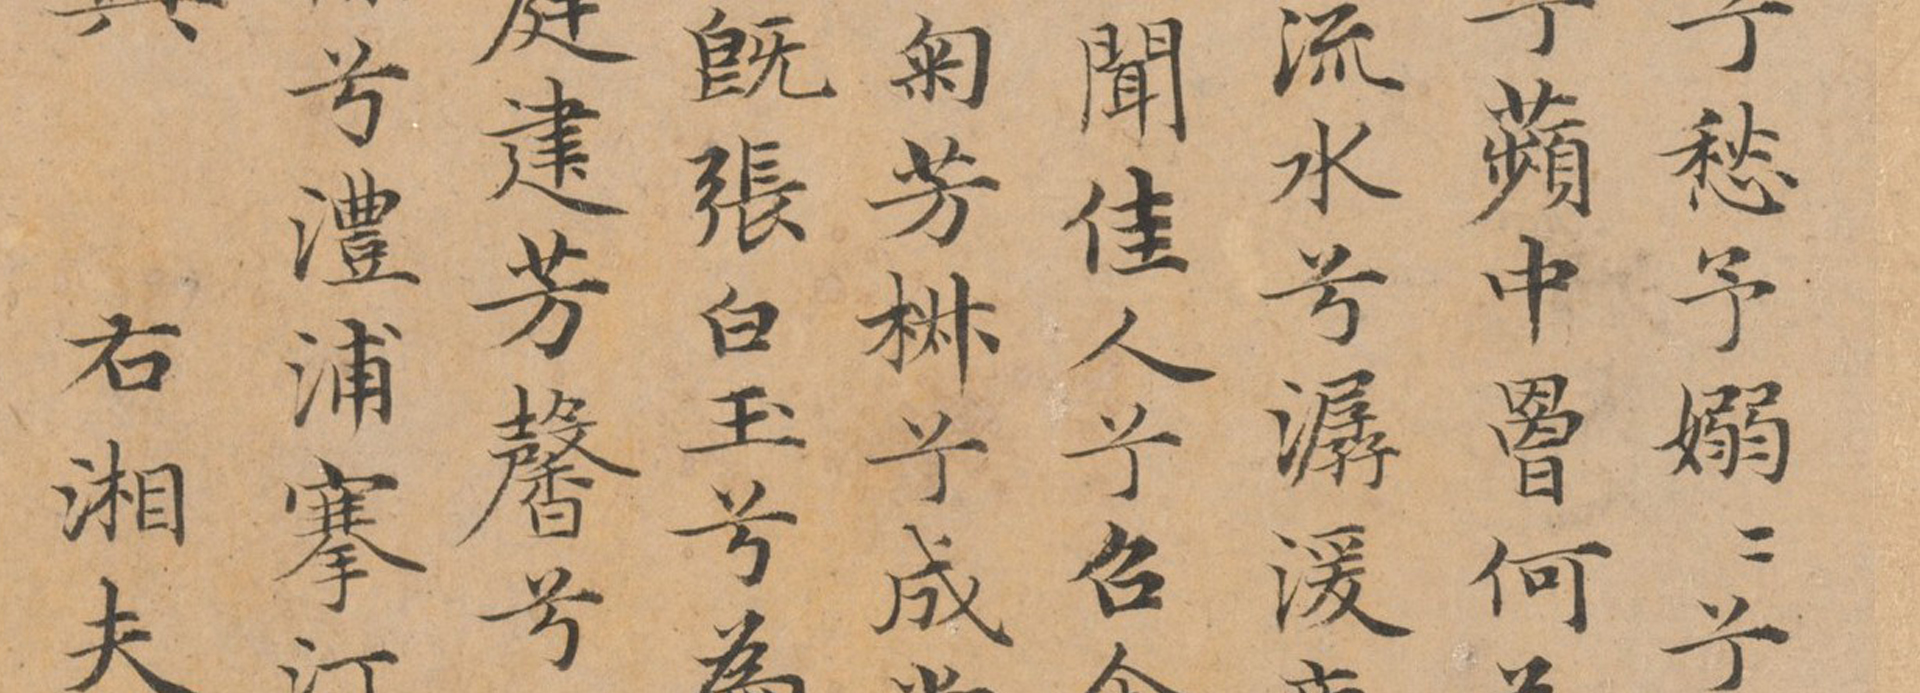 兮愁予嫋〻兮
兮蘋中罾何
流水兮潺湲
聞佳人兮召余
匊芳椒兮成堂
既張白玉兮為
庭建芳馨兮
兮澧浦搴汀
右湘夫